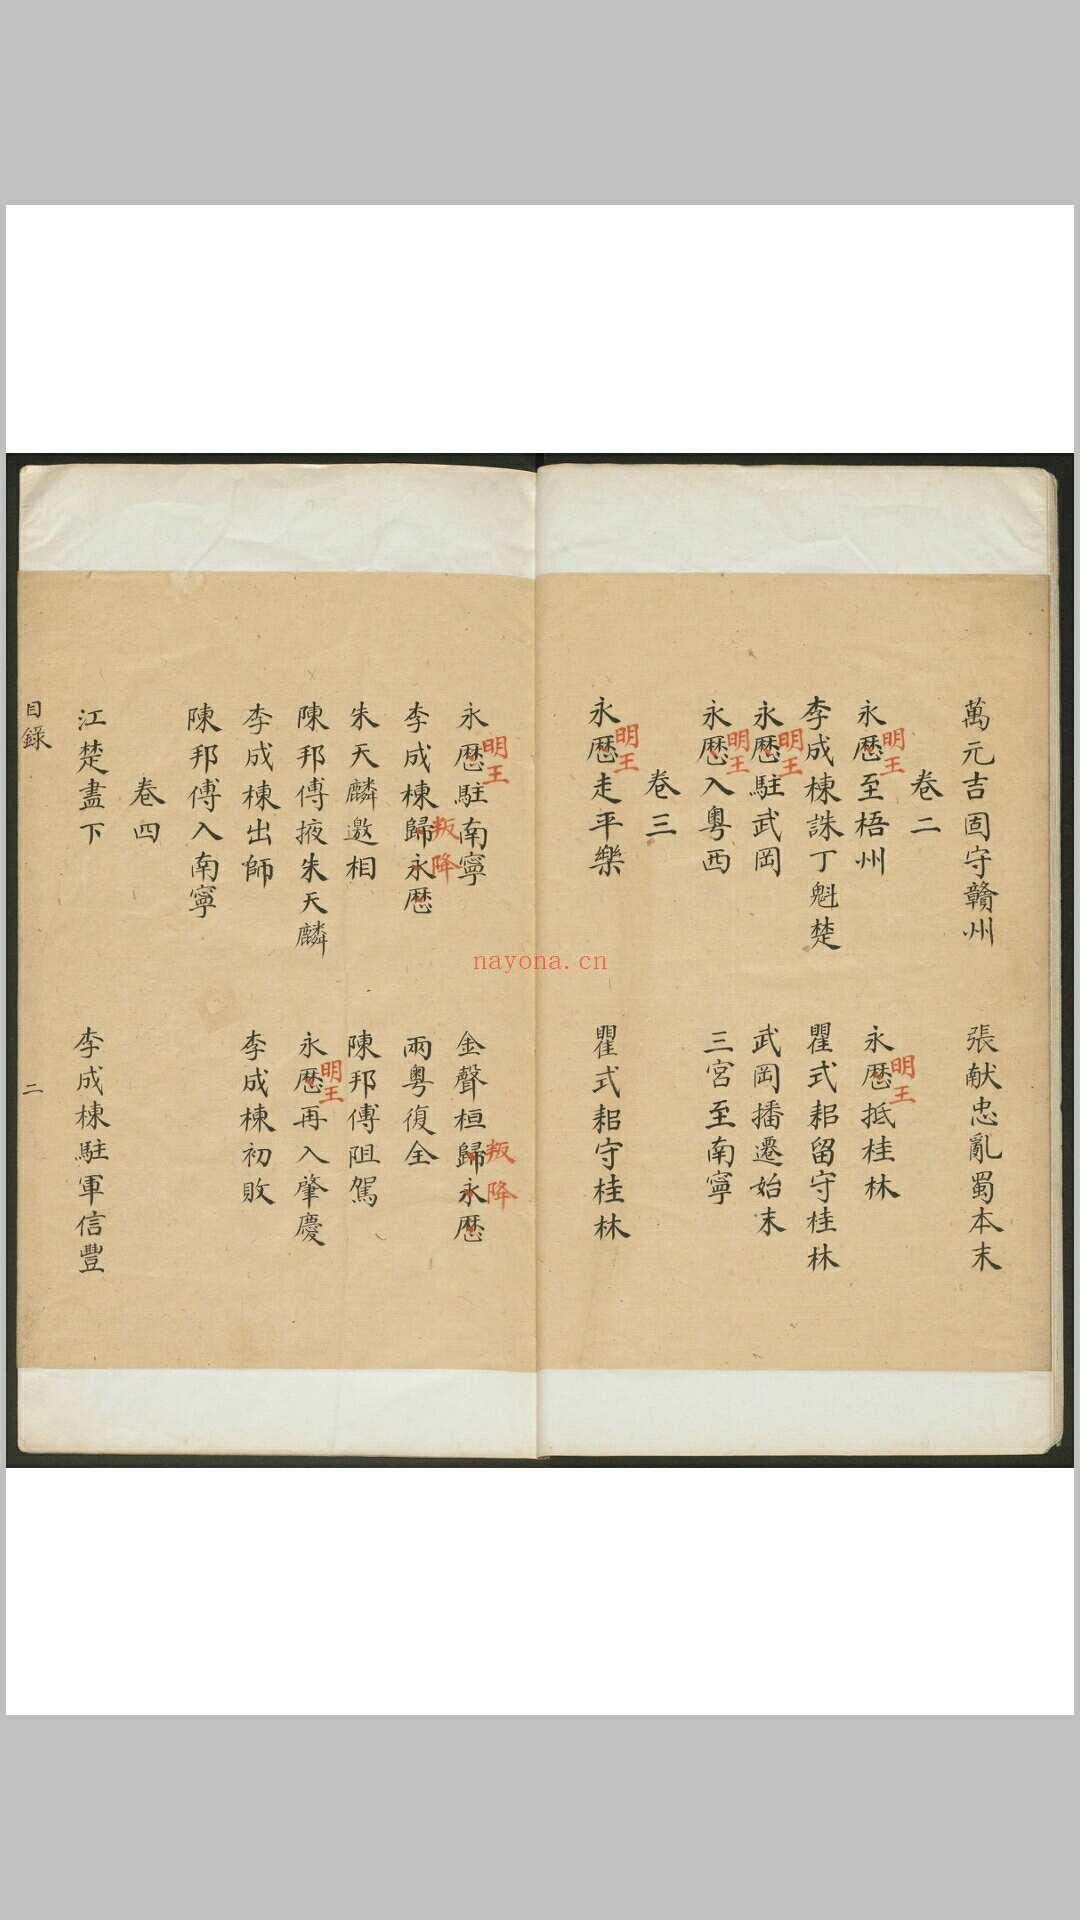 萬元吉固守贛州
張献忠亂蜀本末
卷二
永厯至梧州
明王
永厯抵桂林
明王
李成棟誅丁魁楚
瞿式耜留守桂林
永厯駐武岡
明王
武岡播遷始末
永厯入粵西
明王
三宮至南寧
卷三
永厯走平樂
明王
瞿式耜守桂林
永厯駐南寧
明王
金聲桓歸永厯
叛降
李成棟歸永厯
叛降
兩粤復全
朱天麟邀相
陳邦傅阻駕
陳邦傅掖朱天麟
永厯再入肇慶
明王
李成棟出師
李成棟初敗
陳邦傅入南寧
卷四
江楚盡下
李成棟駐軍信豐
目錄
二
nayona.cn